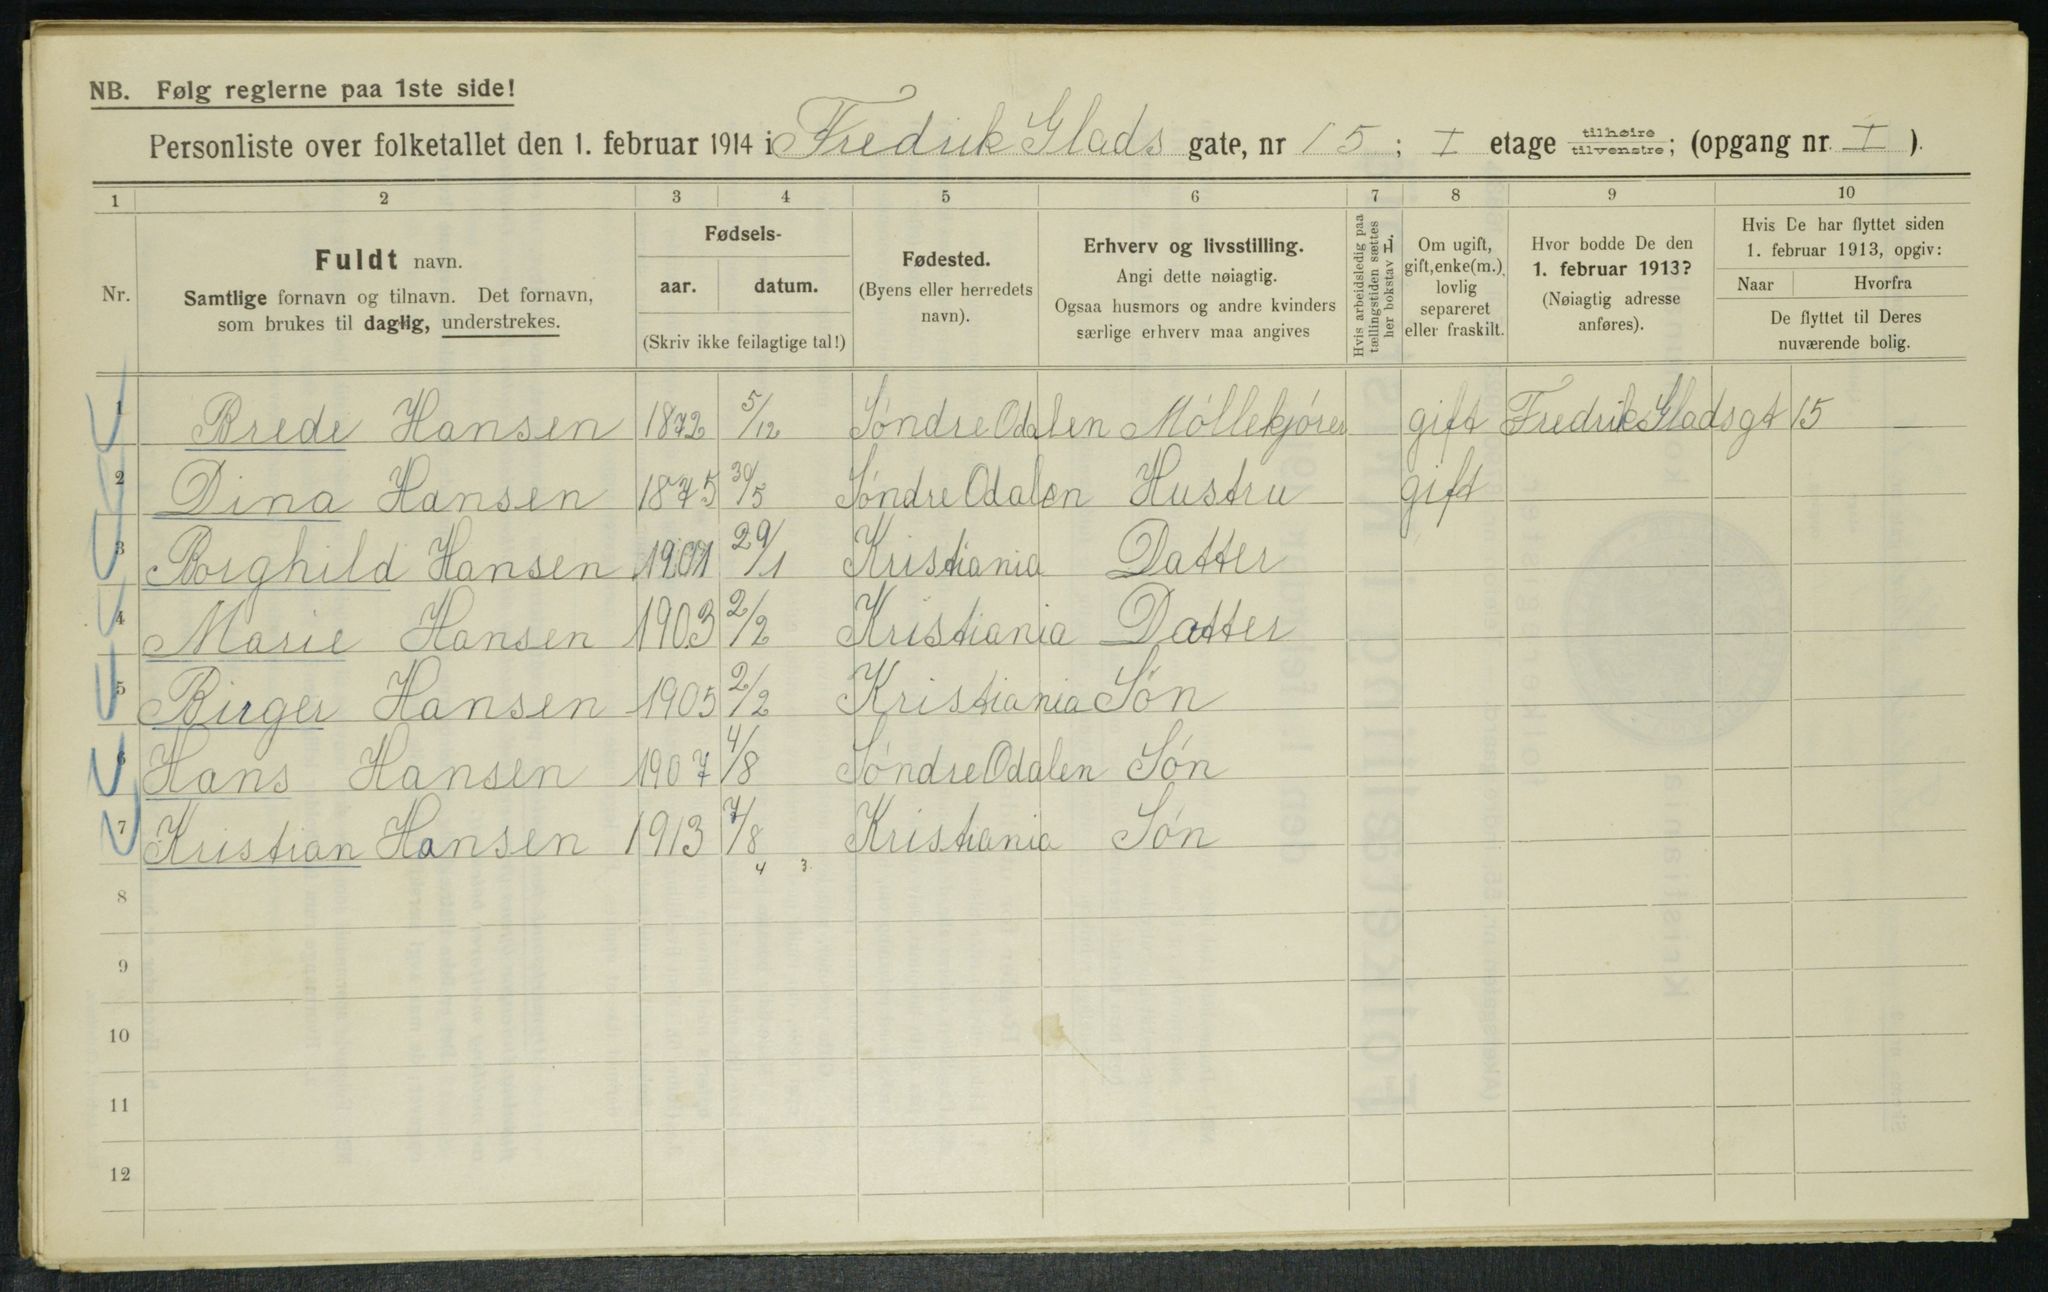 NB. Følg reglerne paa 1ste side!
Personliste over folketallet den 1. februar 1914 i Fredrik Glads gate, nr 15; I etage tilhøire tilvenstre; (opgang nr. I).
1 2 3 4 5 6 7 8 9 10
Nr.
Fuldt navn.
Samtlige fornavn og tilnavn. Det fornavn,
som brukes til daglig, understrekes.
Fødsels-
aar. datum.
(Skriv ikke feilagtige tal!)
Fødested.
(Byens eller herredets
navn).
Erhverv og livsstilling.
Angi dette nøiagtig.
Ogsaa husmors og andre kvinders
særlige erhverv maa angives
Hvis arbeidsledig paa
tællingstiden sættes
her bokstav L.
Om ugift,
gift, enke(m.),
lovlig
separeret
eller fraskilt.
Hvor bodde De den
1. februar 1913?
(Nøiagtig adresse
anføres).
Hvis De har flyttet siden
1. februar 1913, opgiv:
Naar Hvorfra
De flyttet til Deres
nuværende bolig.
1 Brede Hansen 1872 5/12 Søndre Odalen Møllekjører gift Fredrik Gladsgt 15 —
2 Dina Hansen 1875 30/5 Søndre Odalen Hustru gift
3 Borghild Hansen 1901 29/1 Kristiania Datter
4 Marie Hansen 1903 2/2 Kristiania Datter
5 Birger Hansen 1905 2/2 Kristiania Søn
6 Hans Hansen 1907 4/8 Søndre Odalen Søn
7 Kristian Hansen 1913 7/8 Kristiania Søn
4 3.
8
9
10
11
12